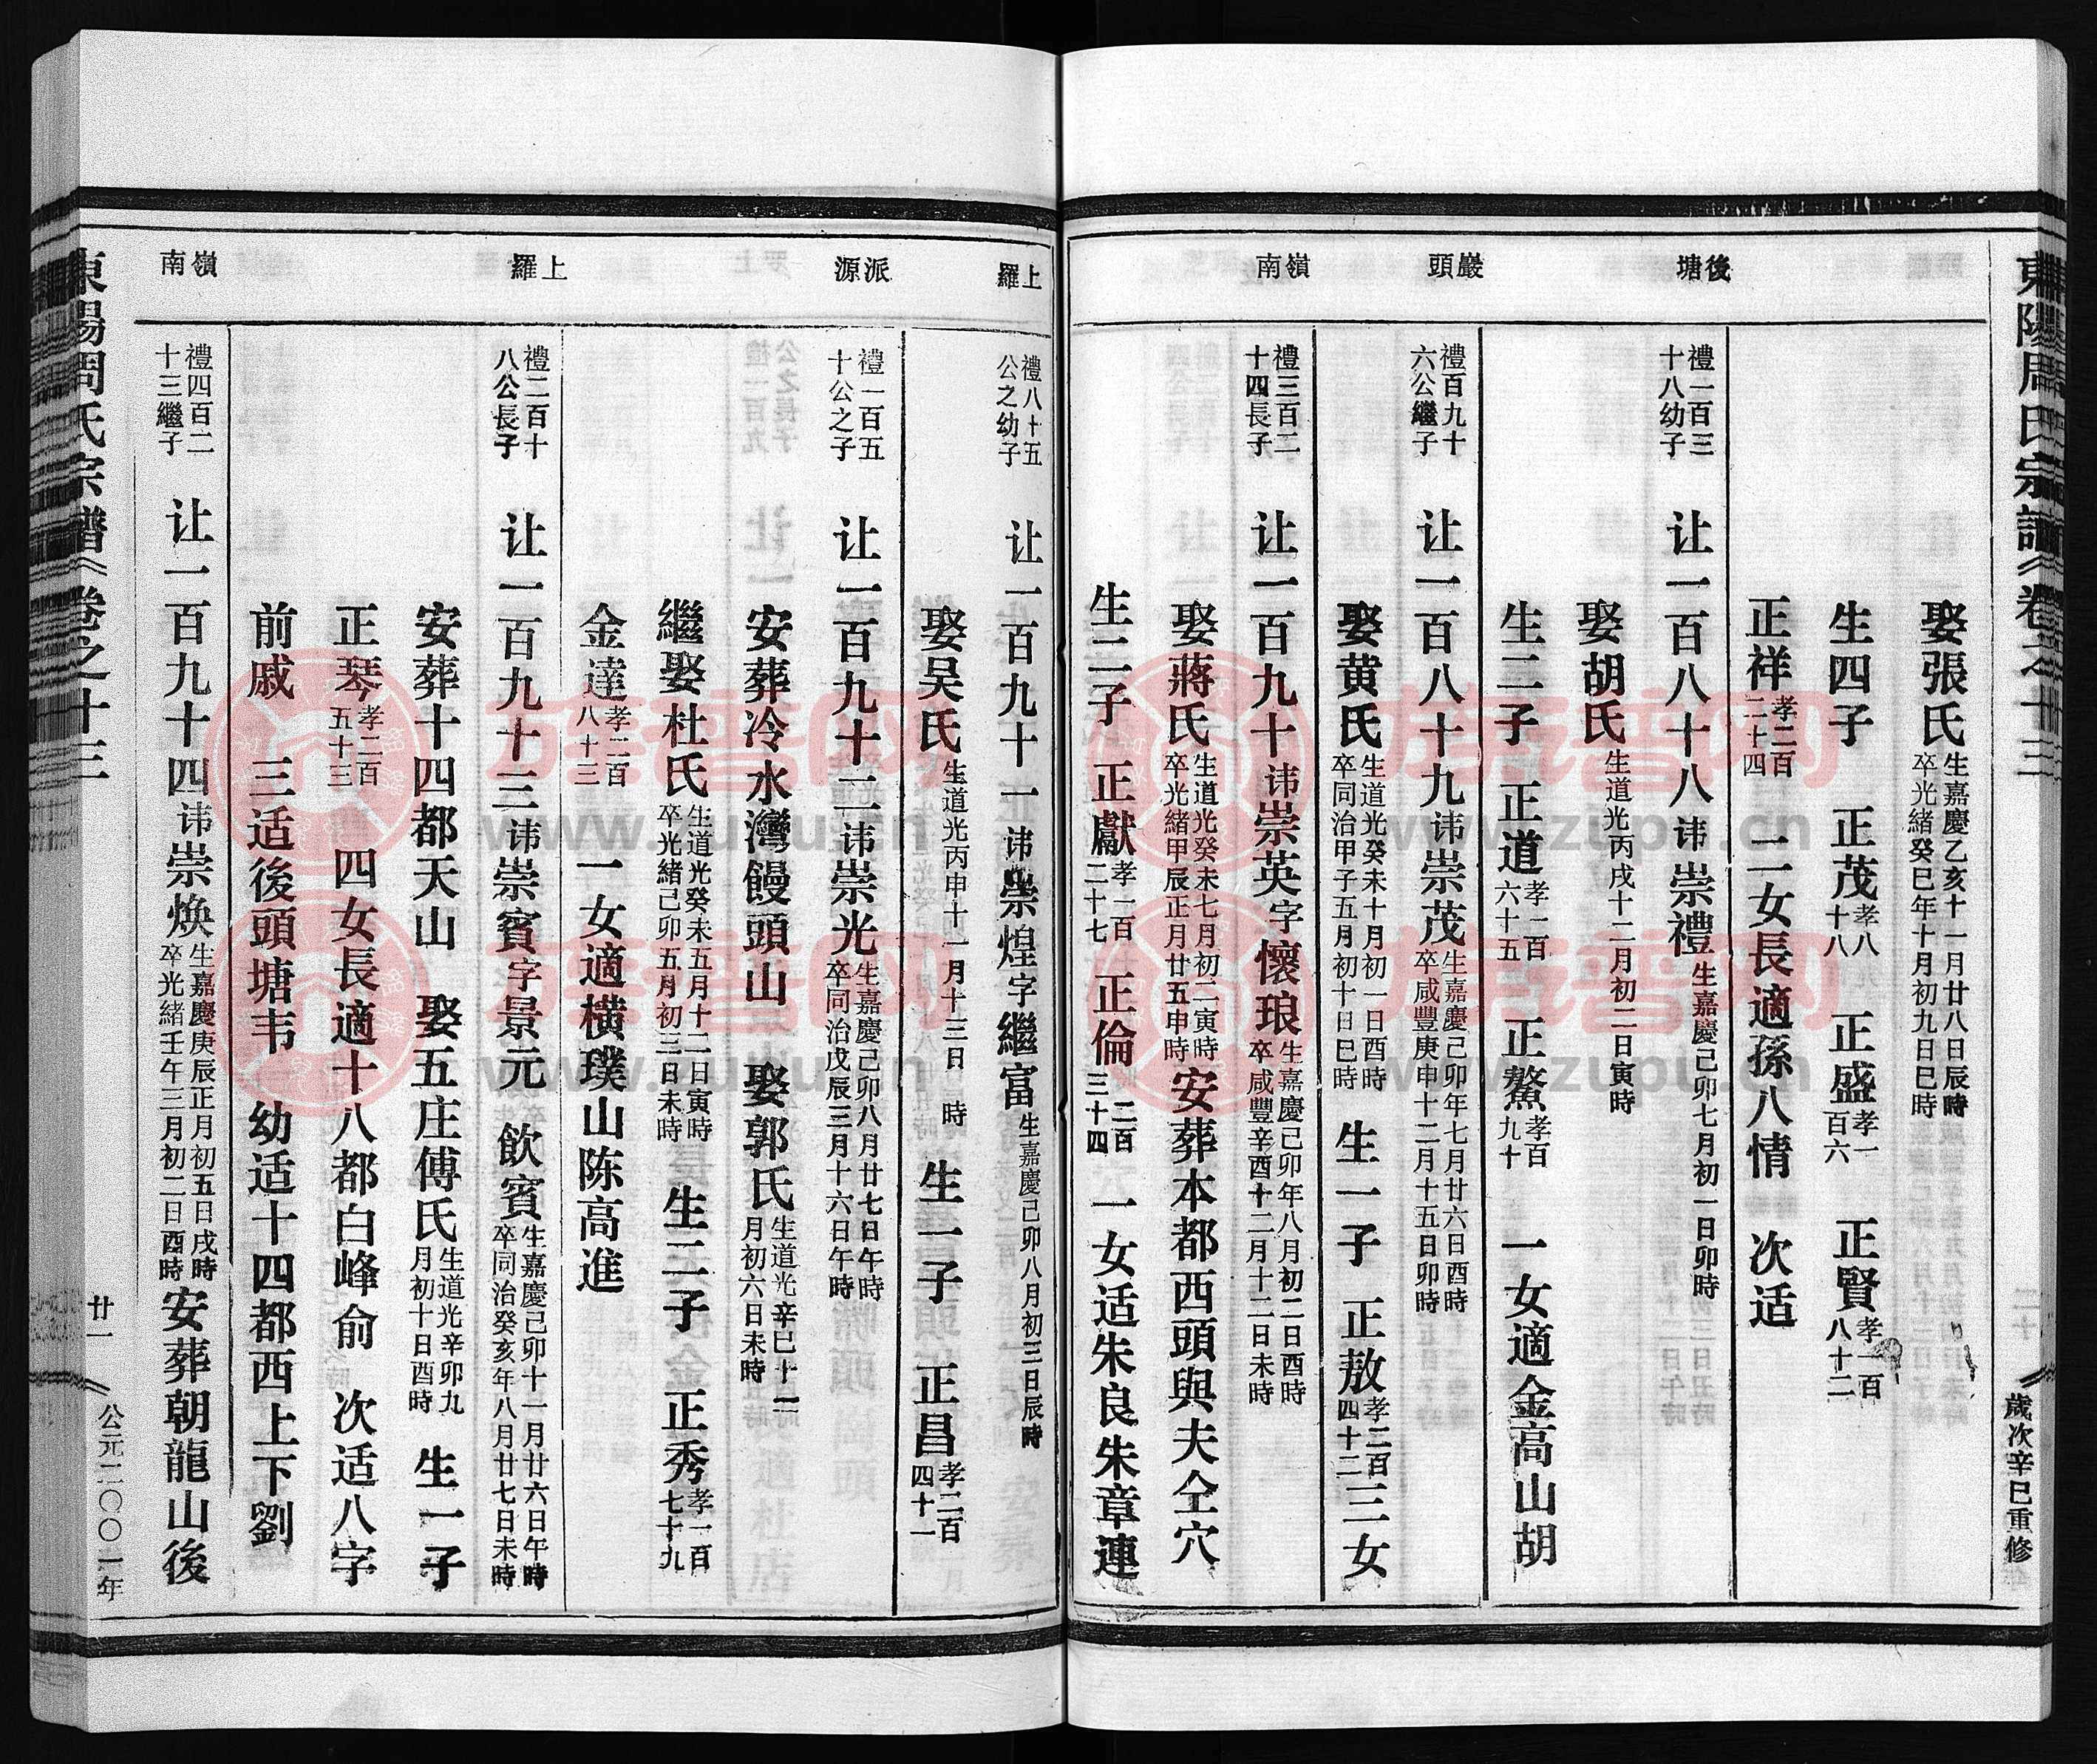 東陽周氏宗譜 卷之十三
歲次辛巳重修
娶張氏 生嘉慶乙亥十一月廿八日辰時 卒光緒癸巳年十月初九日巳時
生四子 正茂 孝八十八 正盛 孝一百六 正賢 孝一百八十二
正祥 孝二百二十四 二女長適孫八情 次适
後塘
禮一百三十八幼子 让一百八十八讳崇禮 生嘉慶己卯七月初一日卯時
娶胡氏 生道光丙戌十二月初二日寅時
生二子 正道 孝一百六十五 正鰲 孝百九十 一女適金高山胡
巖頭
禮百九十六公繼子 让一百八十九讳崇茂 生嘉慶己卯年七月廿六日酉時 卒咸豐庚申十二月十五日卯時
娶黃氏 生道光癸未十月初一日酉時 卒同治甲子五月初十日巳時 生一子 正敖 孝二百四十二 三女
嶺南
禮三百二十四長子 让一百九十讳崇英字懷琅 生嘉慶己卯年八月初二日酉時 卒咸豐辛酉十二月十二日未時
娶蔣氏 生道光癸未七月初二寅時 卒光緒甲辰正月廿五申時 安葬本都西頭與夫仝穴
生二子 正獻 孝一百二十七 正倫 二百三十四 一女适朱良朱章連
上羅
禮八十五公之幼子 让一百九十一讳崇煌字繼富 生嘉慶己卯八月初三日辰時
娶吴氏 生道光丙申十一月十三日 時 生一子 正昌 孝二百四十一
派源
禮一百五十公之子 让一百九十二讳崇光 生嘉慶己卯八月廿七日午時 卒同治戊辰三月十六日午時
安葬冷水灣饅頭山 娶郭氏 生道光辛巳十二月初六日未時
繼娶杜氏 生道光癸未五月十二日寅時 卒光緒己卯五月初三日未時 生二子 正秀 孝一百七十九
金達 孝二百八十三 一女適橫璞山陈高進
上羅
禮二百十八公長子 让一百九十三讳崇賓字景元 飲賓 生嘉慶己卯十一月廿六日午時 卒同治癸亥年八月廿七日未時
安葬十四都天山 娶五庄傅氏 生道光辛卯九月初十日酉時 生一子
正琴 孝二百五十三 四女長適十八都白峰俞 次适八字
前戚 三适後頭塘韦 幼适十四都西上下劉
嶺南
禮四百二十三繼子 让一百九十四讳崇焕 生嘉慶庚辰正月初五日戌時 卒光緒壬午三月初二日酉時 安葬朝龍山後
東陽周氏宗譜 卷之十三
廿一
公元二〇〇一年
族谱网
www.zupu.cn
族谱网
www.zupu.cn
族谱网
www.zupu.cn
族谱网
www.zupu.cn